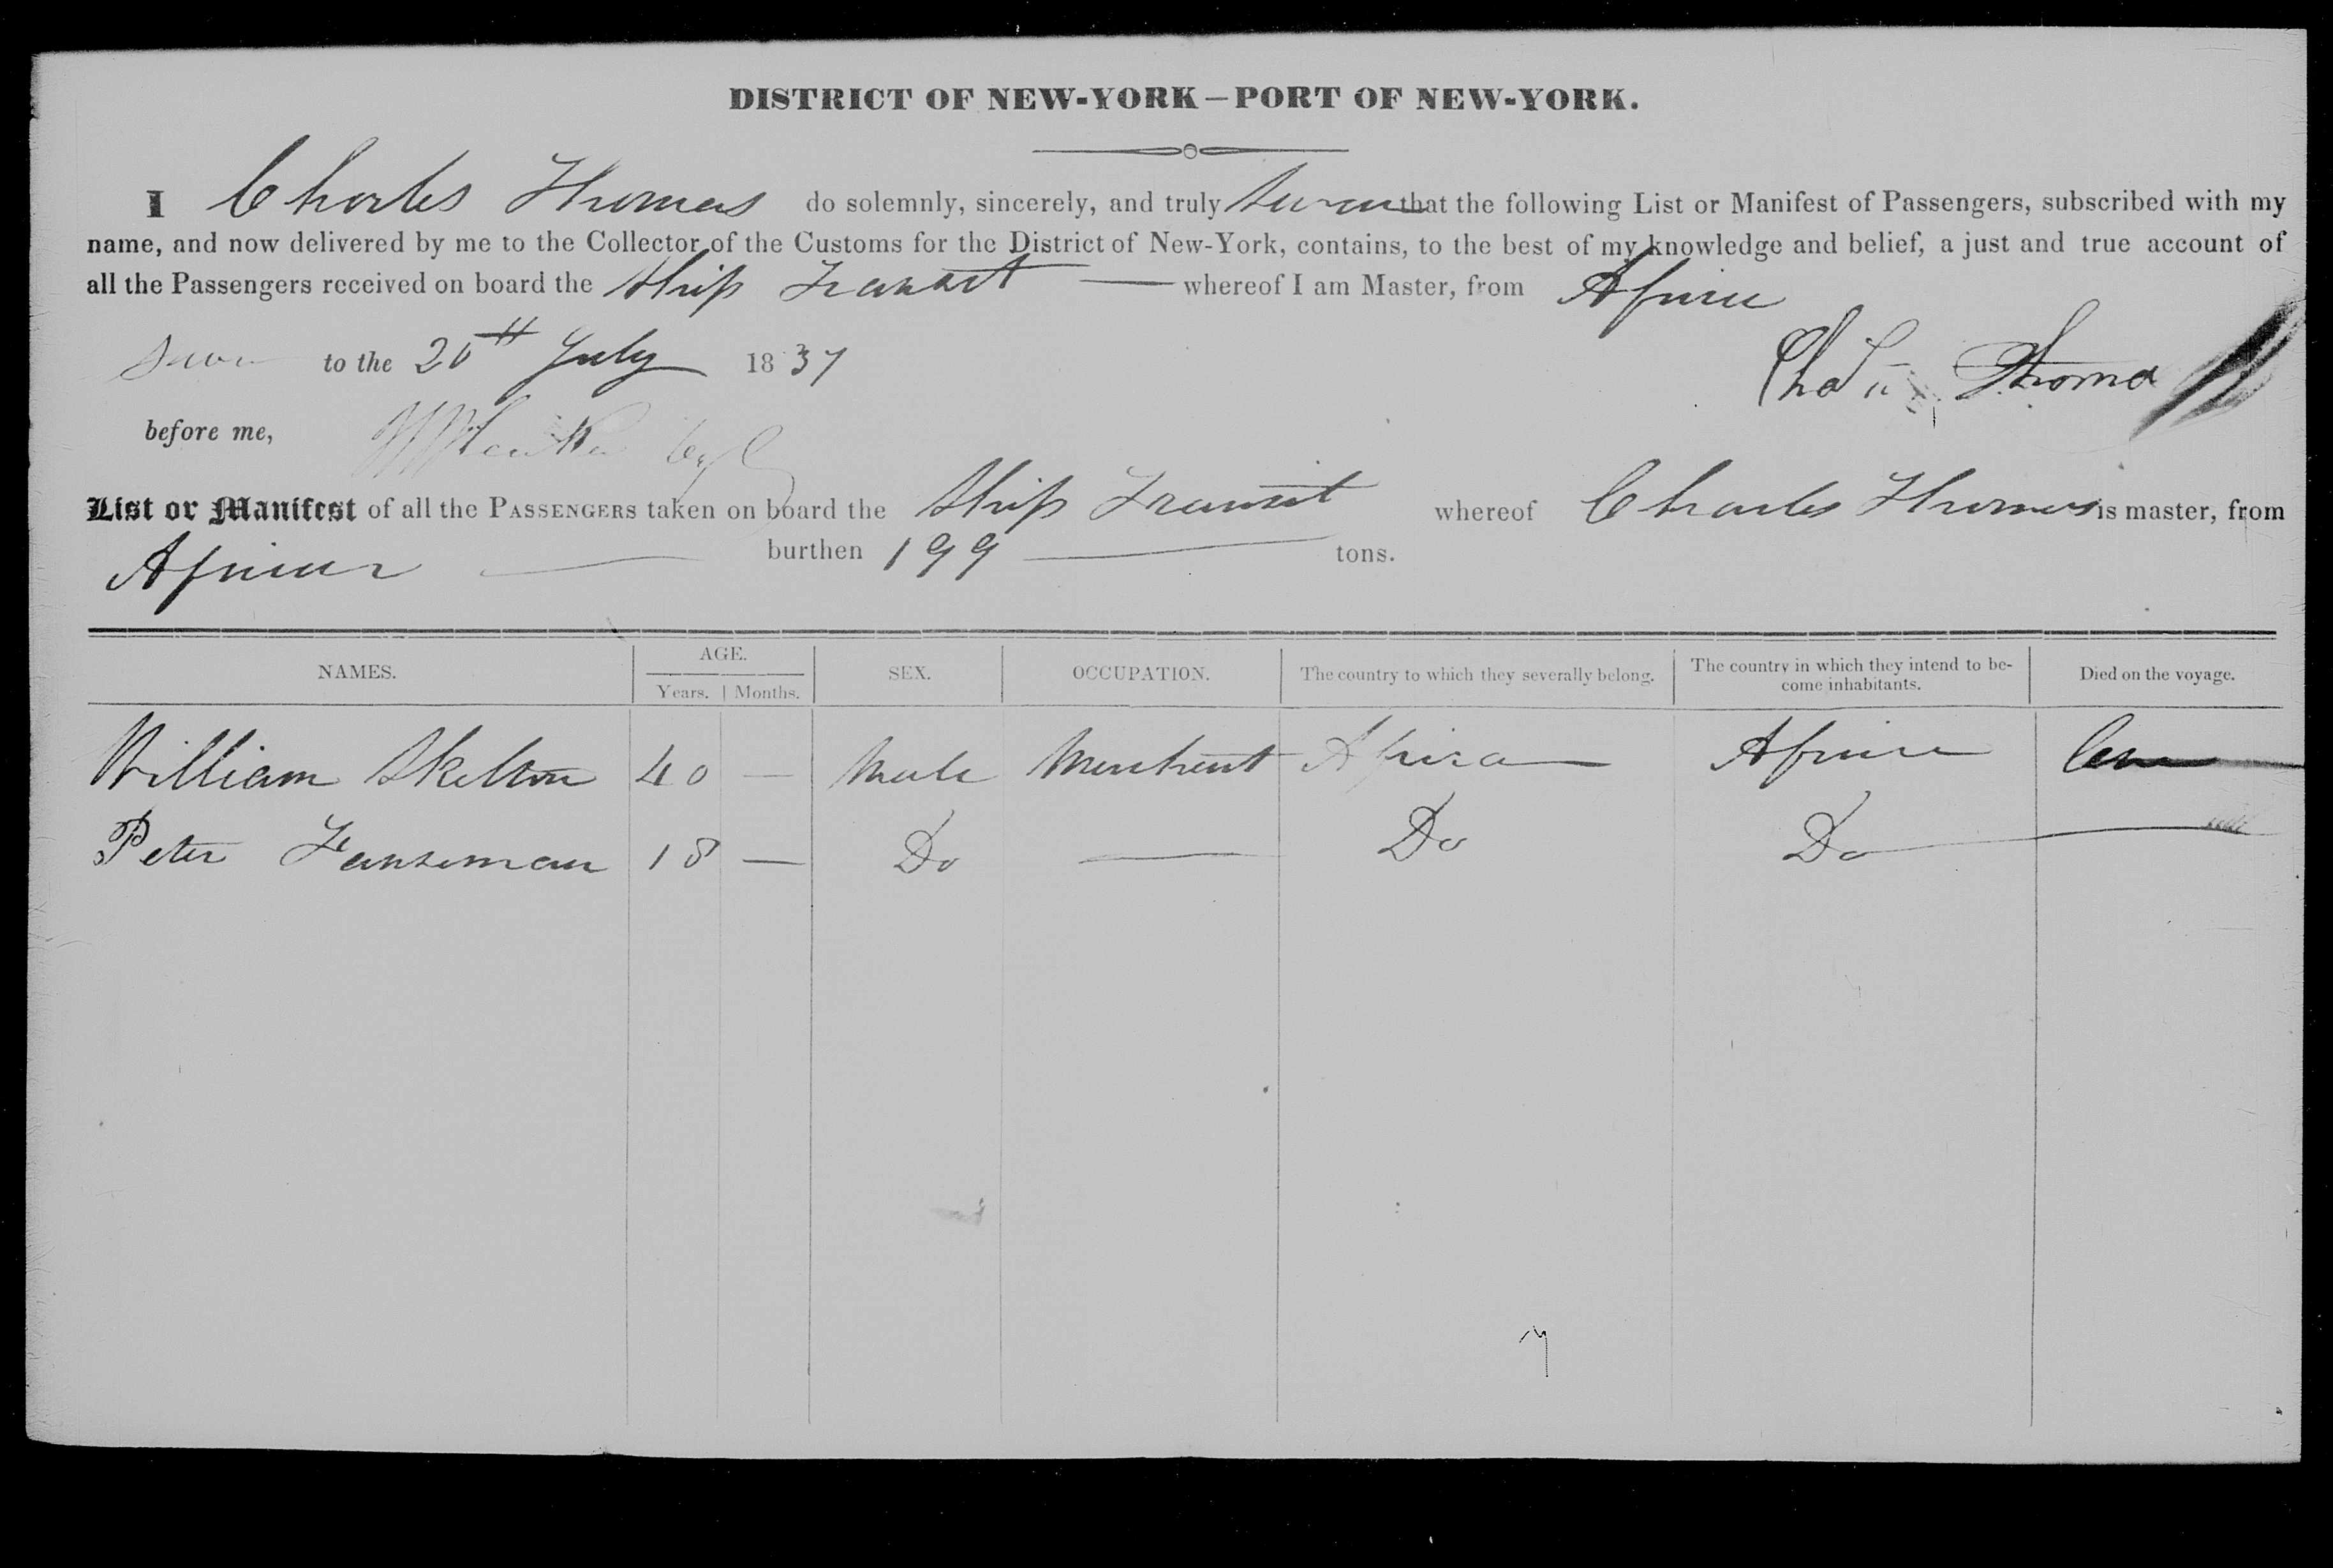 DISTRICT OF NEW-YORK—PORT OF NEW-YORK.
I Charles Thomas do solemnly, sincerely, and truly swear that the following List or Manifest of Passengers, subscribed with my
name, and now delivered by me to the Collector of the Customs for the District of New-York, contains, to the best of my knowledge and belief, a just and true account of
all the Passengers received on board the Ship Transit — whereof I am Master, from Africa
Sworn to the 20th July 1837
Thomas
before me,
List or Manifest of all the PASSENGERS taken on board the Ship Transit whereof Charles Thomas is master, from
Africa — burthen 199 — tons.
NAMES. AGE. Years. Months. SEX. OCCUPATION. The country to which they severally belong. The country in which they intend to be-come inhabitants. Died on the voyage.
William Skelton 40 — Male Merchant Africa Africa
Peter 18 — Do — Do Do —